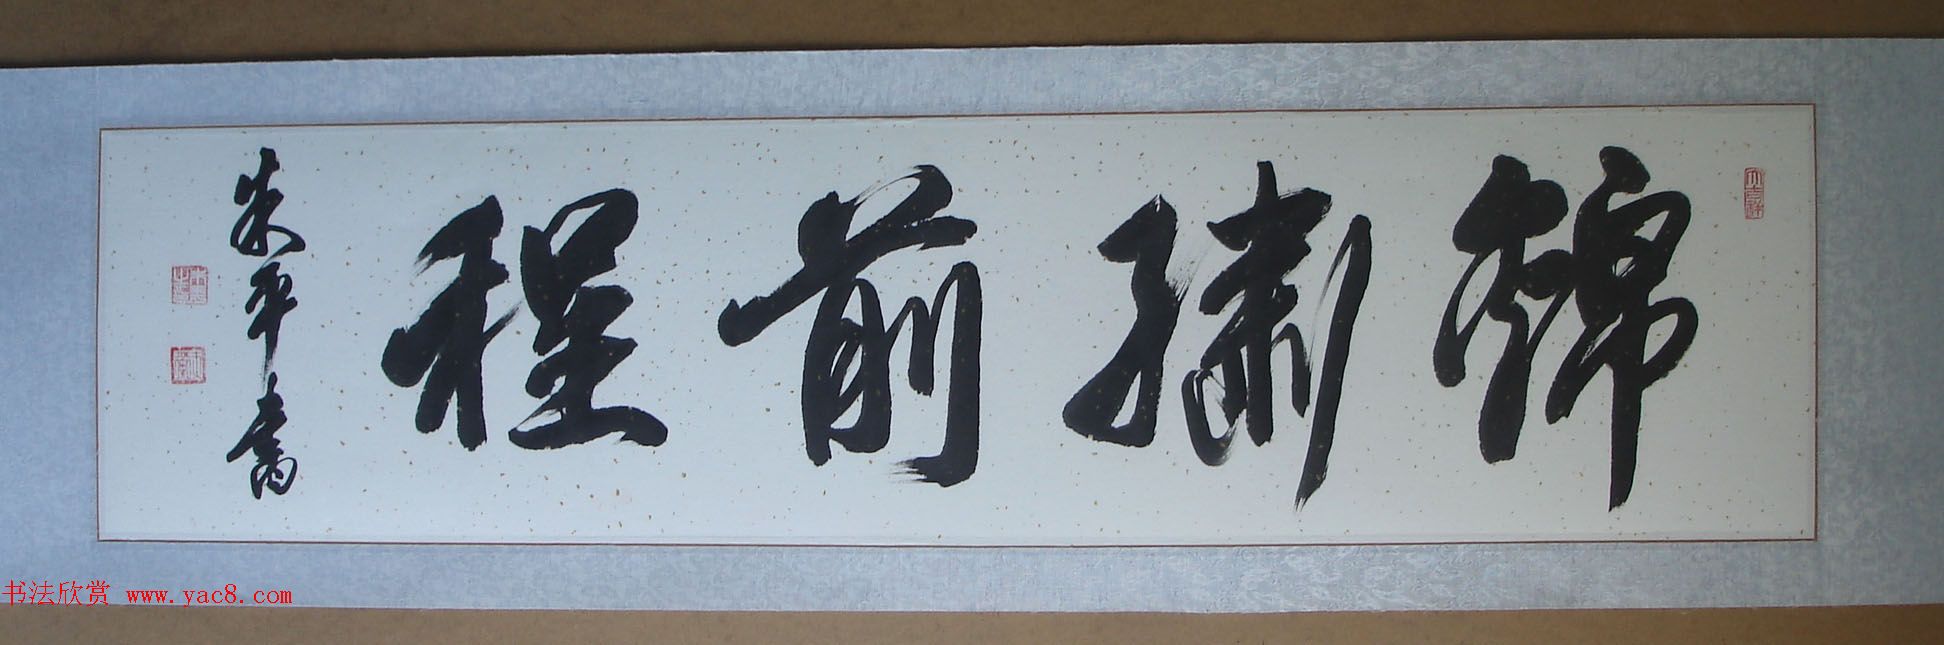 錦繡前程
朱平書
书法欣赏 www.yac8.com